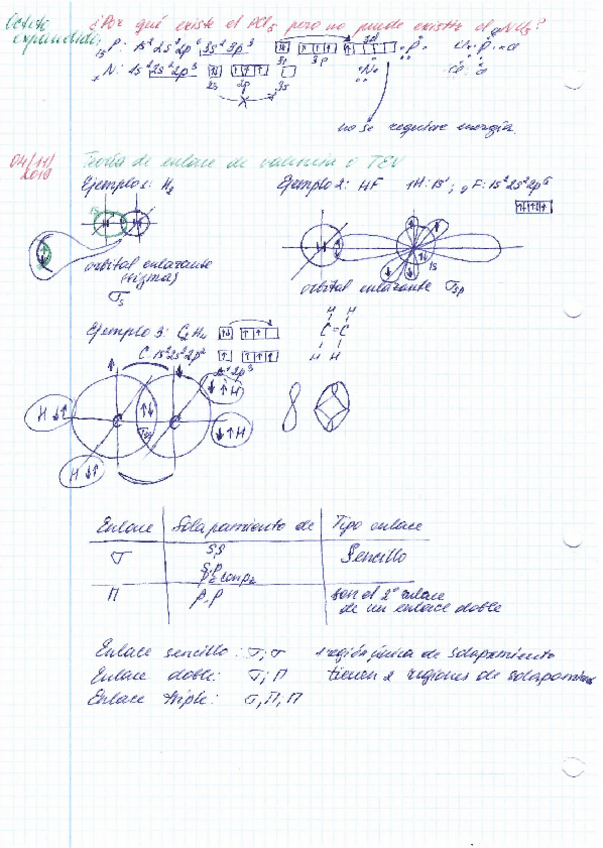 Octeto expandido:
¿Por qué existe el PCl₅ pero no puede existir el ₇NCl₅?
₁₅P: 1s²2s²2p⁶ 3s²3p³ 3s 3p 3d P Cl P Cl
₇N: 1s²2s²2p³ 2s 2p 3s N Cl Cl
no se requiere energía
04/11/2019
Teoría de enlace de valencia o TEV
Ejemplo 1: H₂ Ejemplo 2: HF ₁H: 1s¹; ₉F: 1s²2s²2p⁵
1s H H
H 1s
orbital enlazante (sigma)
σs
orbital enlazante σsp
Ejemplo 3: C₂H₄
H H
C=C
H H
C 1s²2s²2p²
H C C H
H H
Enlace Solapamiento de Tipo enlace
σ s,s Sencillo
s,p
π p,p son el 2º enlace
de un enlace doble
Enlace sencillo: σ; σ 1 región única de solapamiento
Enlace doble: σ; π tienen 2 regiones de solapamiento
Enlace triple: σ, π, π